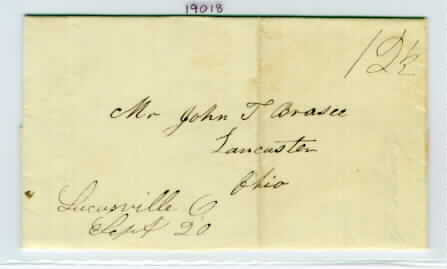 19018
12½
Mr John T Brasee
Lancaster
Ohio
Lucasville O
Sept 20